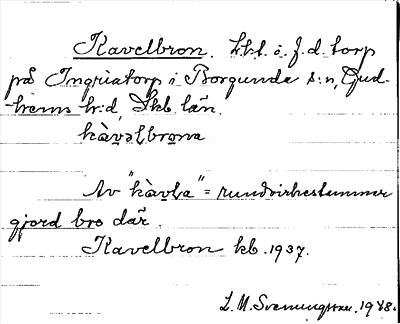 Kavelbron. Lht. o. f.d. torp
på Ingriatorp i Borgunda s:n, Gud-
hems hr:d, Skb. län.
kàvəlbrona
Av "kàvla" = rundvirkestammar
gjord bro där.
Kavelbron kb. 1937.
L. M. Svenungsson. 1948.